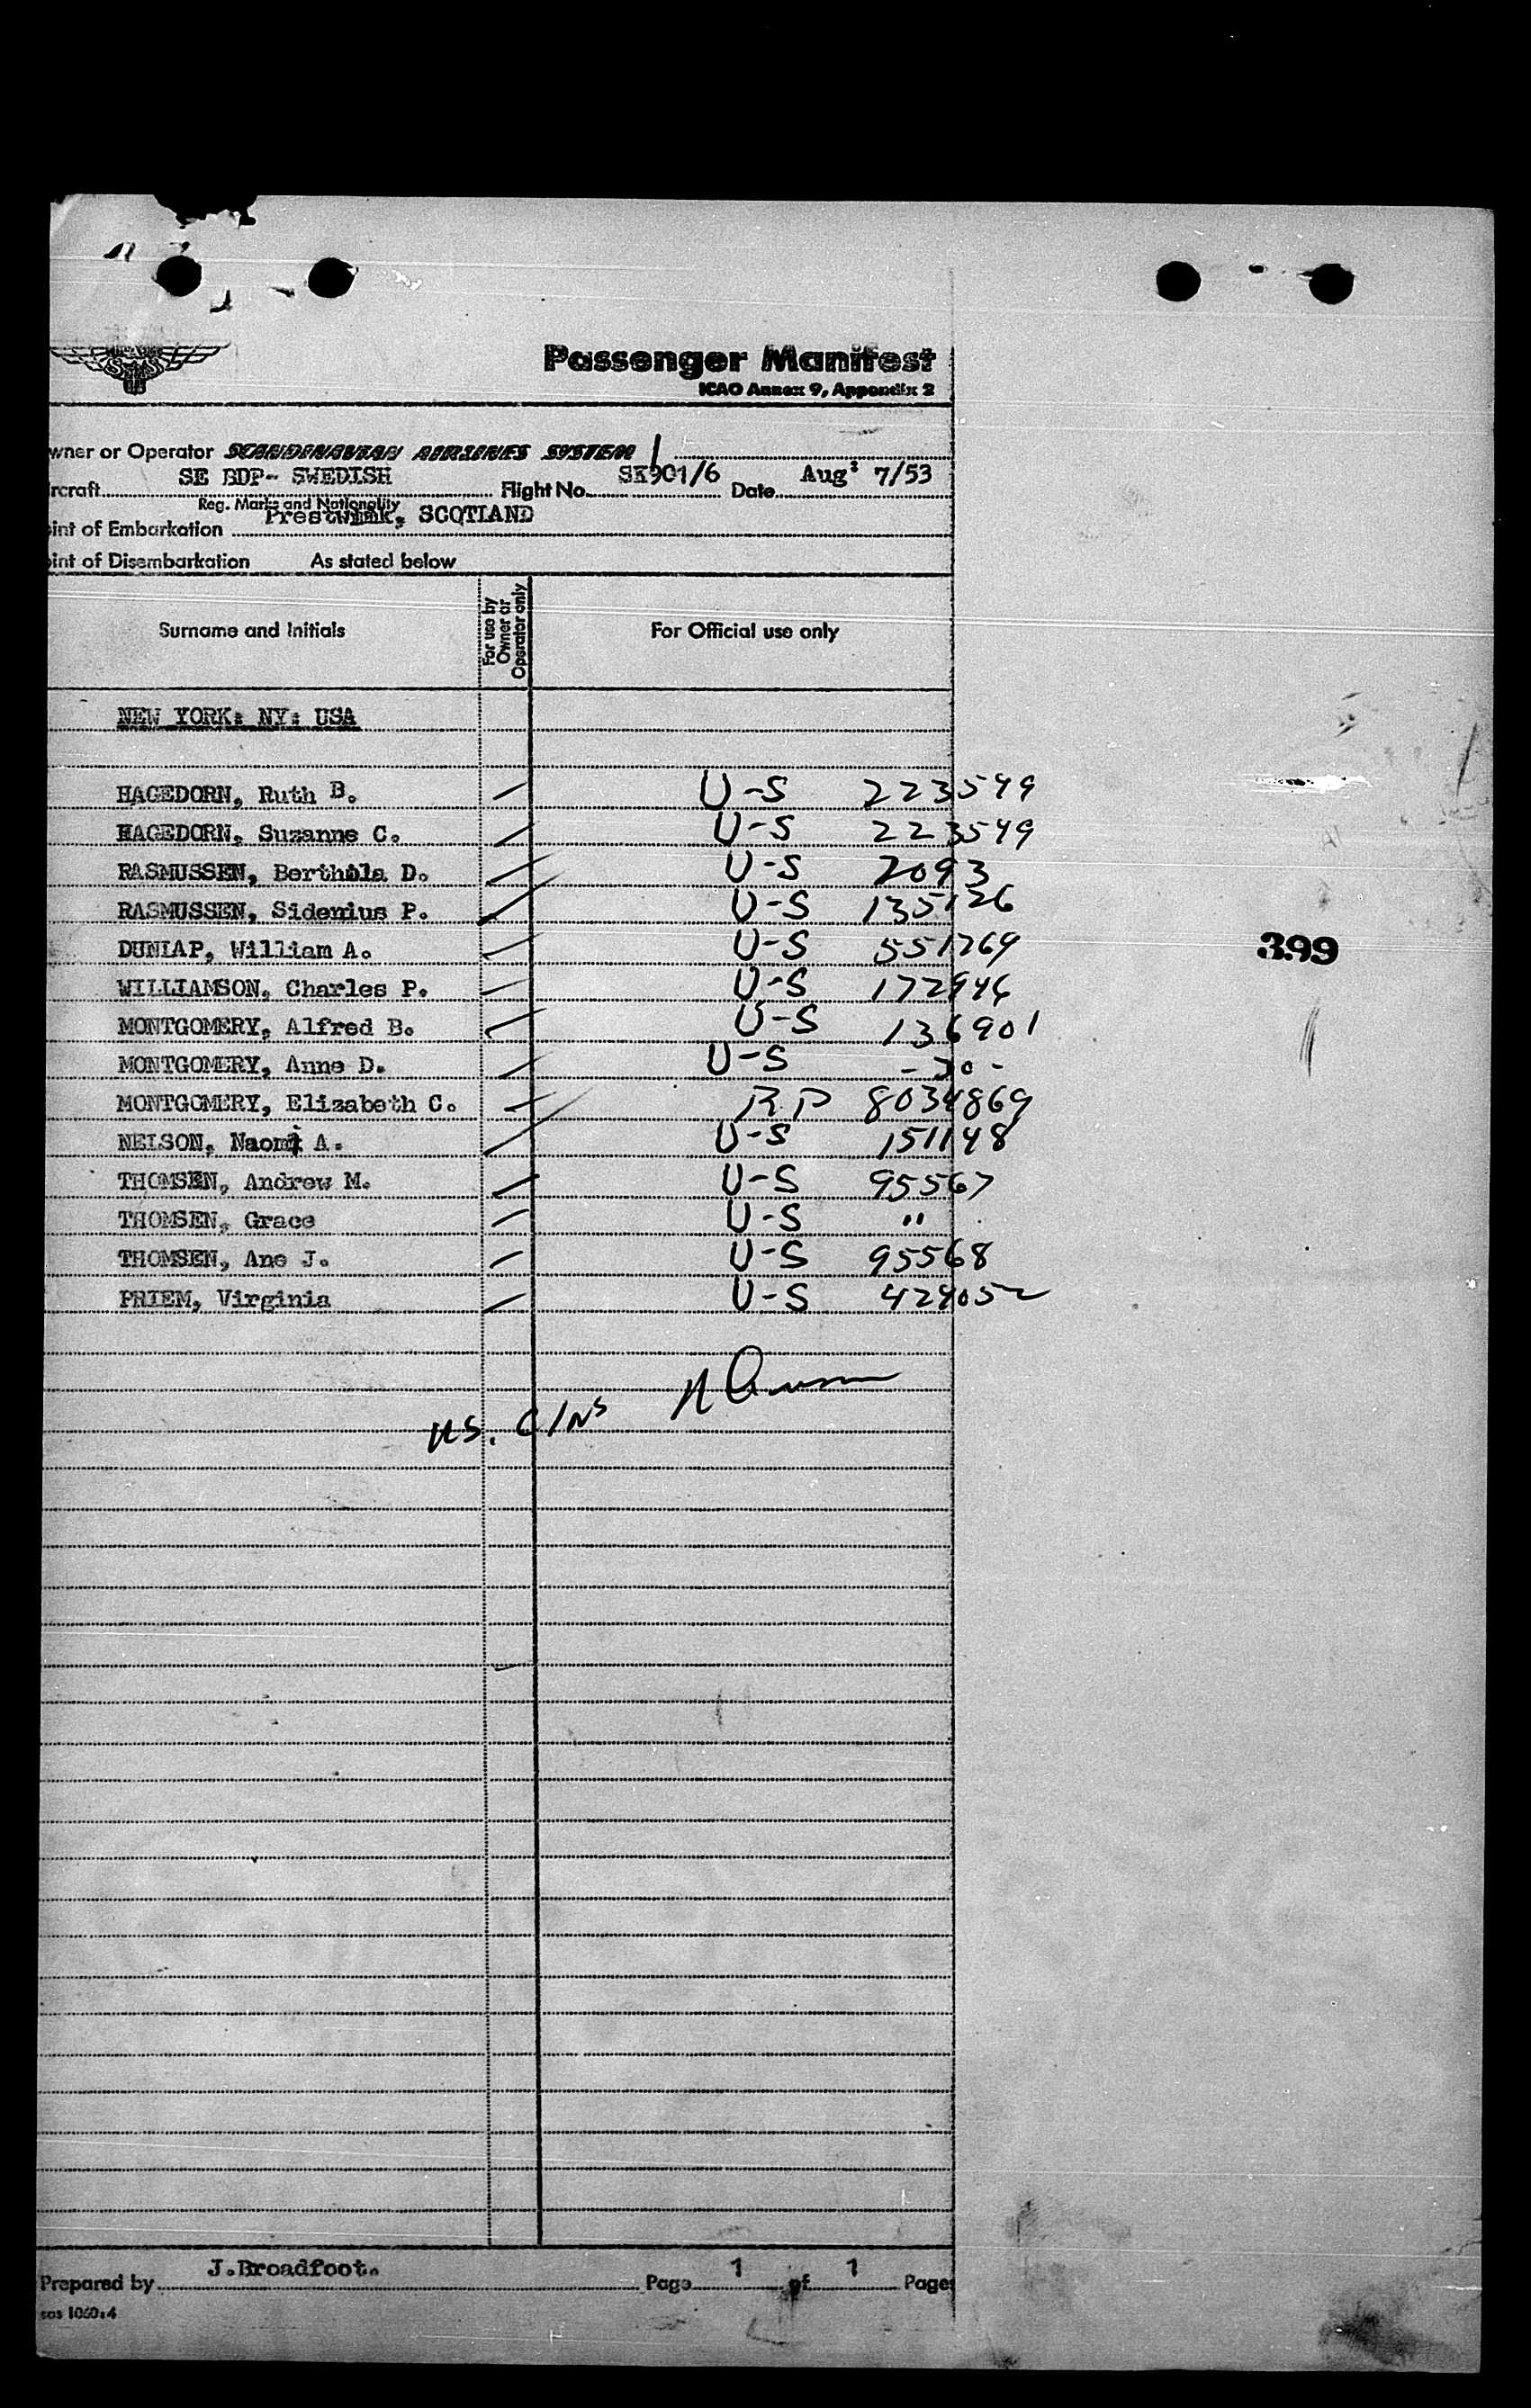 SAS
Passenger Manifest
ICAO Annex 9, Appendix 2
wner or Operator SCANDINAVIAN AIRLINES SYSTEM
ircraft SE BDP- SWEDISH Flight No. SK901/6 Date Aug: 7/53
Reg. Marks and Nationality
oint of Embarkation Prestwick, SCOTLAND
oint of Disembarkation As stated below
Surname and Initials For use by Owner or Operator only For Official use only
NEW YORK: NY: USA
HAGEDORN, Ruth B. U-S 223549
HAGEDORN, Suzanne C. U-S 223549
RASMUSSEN, Berthola D. U-S 2093
RASMUSSEN, Sidenius P. U-S 135126
DUNLAP, William A. U-S 551769
WILLIAMSON, Charles P. U-S 172946
399
MONTGOMERY, Alfred B. U-S 136901
MONTGOMERY, Anne D. U-S - Do -
MONTGOMERY, Elizabeth C. RP 8034869
NELSON, Naomi A. U-S 151148
THOMSEN, Andrew M. U-S 95567
THOMSEN, Grace U-S "
THOMSEN, Ane J. U-S 95568
PRIEM, Virginia U-S 429052
US. C/NS
Prepared by J.Broadfoot. Page 1 of 1 Pages
sas 1060:4